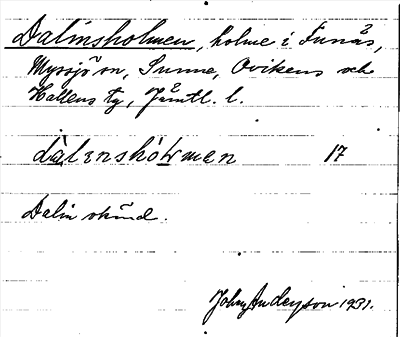 Dalinsholmen, holme i Funås,
Myssjö sn, Sunne, Ovikens och
Hallens tg, Jämtl. l.
dàlenshólmen 17
Dalin okänd.
John Anderson 1931.